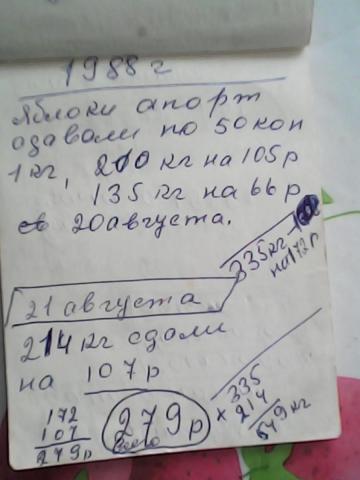 1988 г
Яблоки апорт
сдавали по 50 коп
1 кг, 210 кг на 105 р
135 кг на 66 р
20 августа.
335 кг
на 172 р
21 августа
214 кг сдали
на 107 р
172
107
279 р
279 р
всего
335
× 214
549 кг